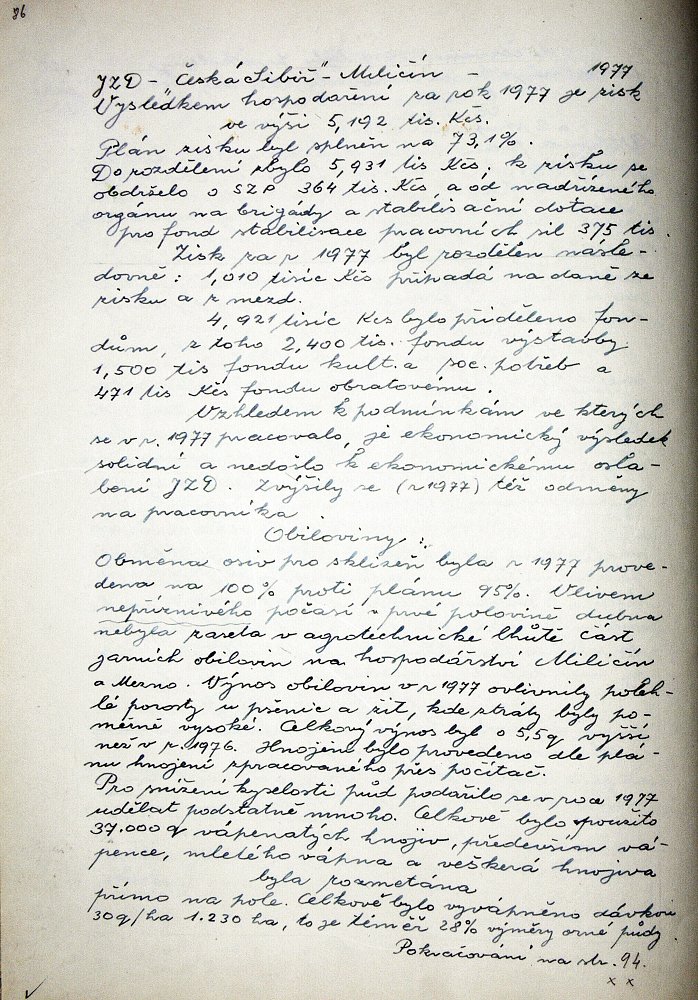 86
JZD - "Česká Sibiř" - Miličín - 1977
Výsledkem hospodaření za rok 1977 je zisk
ve výši 5,192 tis. Kčs.
Plán zisku byl splněn na 73,1%.
Do rozdělení zbylo 5,931 tis Kčs, k zisku se
obdrželo o SZP 364 tis. Kčs, a od nadřízeného
orgánu na brigády a stabilisační dotace
pro fond stabilisace pracovních sil 375 tis.
Zisk za r 1977 byl rozdělen násle-
dovně: 1,010 tisíc Kčs připadá na daně ze
zisku a z mezd.
4,921 tisíc Kčs bylo přiděleno fon-
dům, z toho 2,400 tis. fondu výstavby
1,500 tis fondu kult. a soc. potřeb a
471 tis Kčs fondu obratovému.
Vzhledem k podmínkám ve kterých
se v r. 1977 pracovalo, je ekonomický výsledek
solidní a nedošlo k ekonomickému osla-
bení JZD. Zvýšily se (r 1977) též odměny
na pracovníka
Obiloviny:
Obměna osiv pro sklizeň byla r 1977 prove-
dena na 100% proti plánu 95%. Vlivem
nepříznivého počasí v prvé polovině dubna
nebyla zaseta v agrotechnické lhůtě část
jarních obilovin na hospodářství Miličín
a Mezno. Výnos obilovin v r 1977 ovlivnily poleh-
lé porosty u pšenic a žit, kde ztráty byly po-
měrně vysoké. Celkový výnos byl o 5,5q vyšší
než v r. 1976. Hnojení bylo provedeno dle plá-
nu hnojení zpracovaného přes počítač.
Pro snížení kyselosti půd podařilo se v roce 1977
udělat podstatně mnoho. Celkově bylo použito
37.000 q vápenatých hnojiv, především vá-
pence, mletého vápna a veškerá hnojiva
byla rozmetána
přímo na pole. Celkově bylo vyvápněno dávkou
30q/ha 1.230 ha, to je téměř 28% výměry orné půdy.
Pokračování na str. 94.
x x